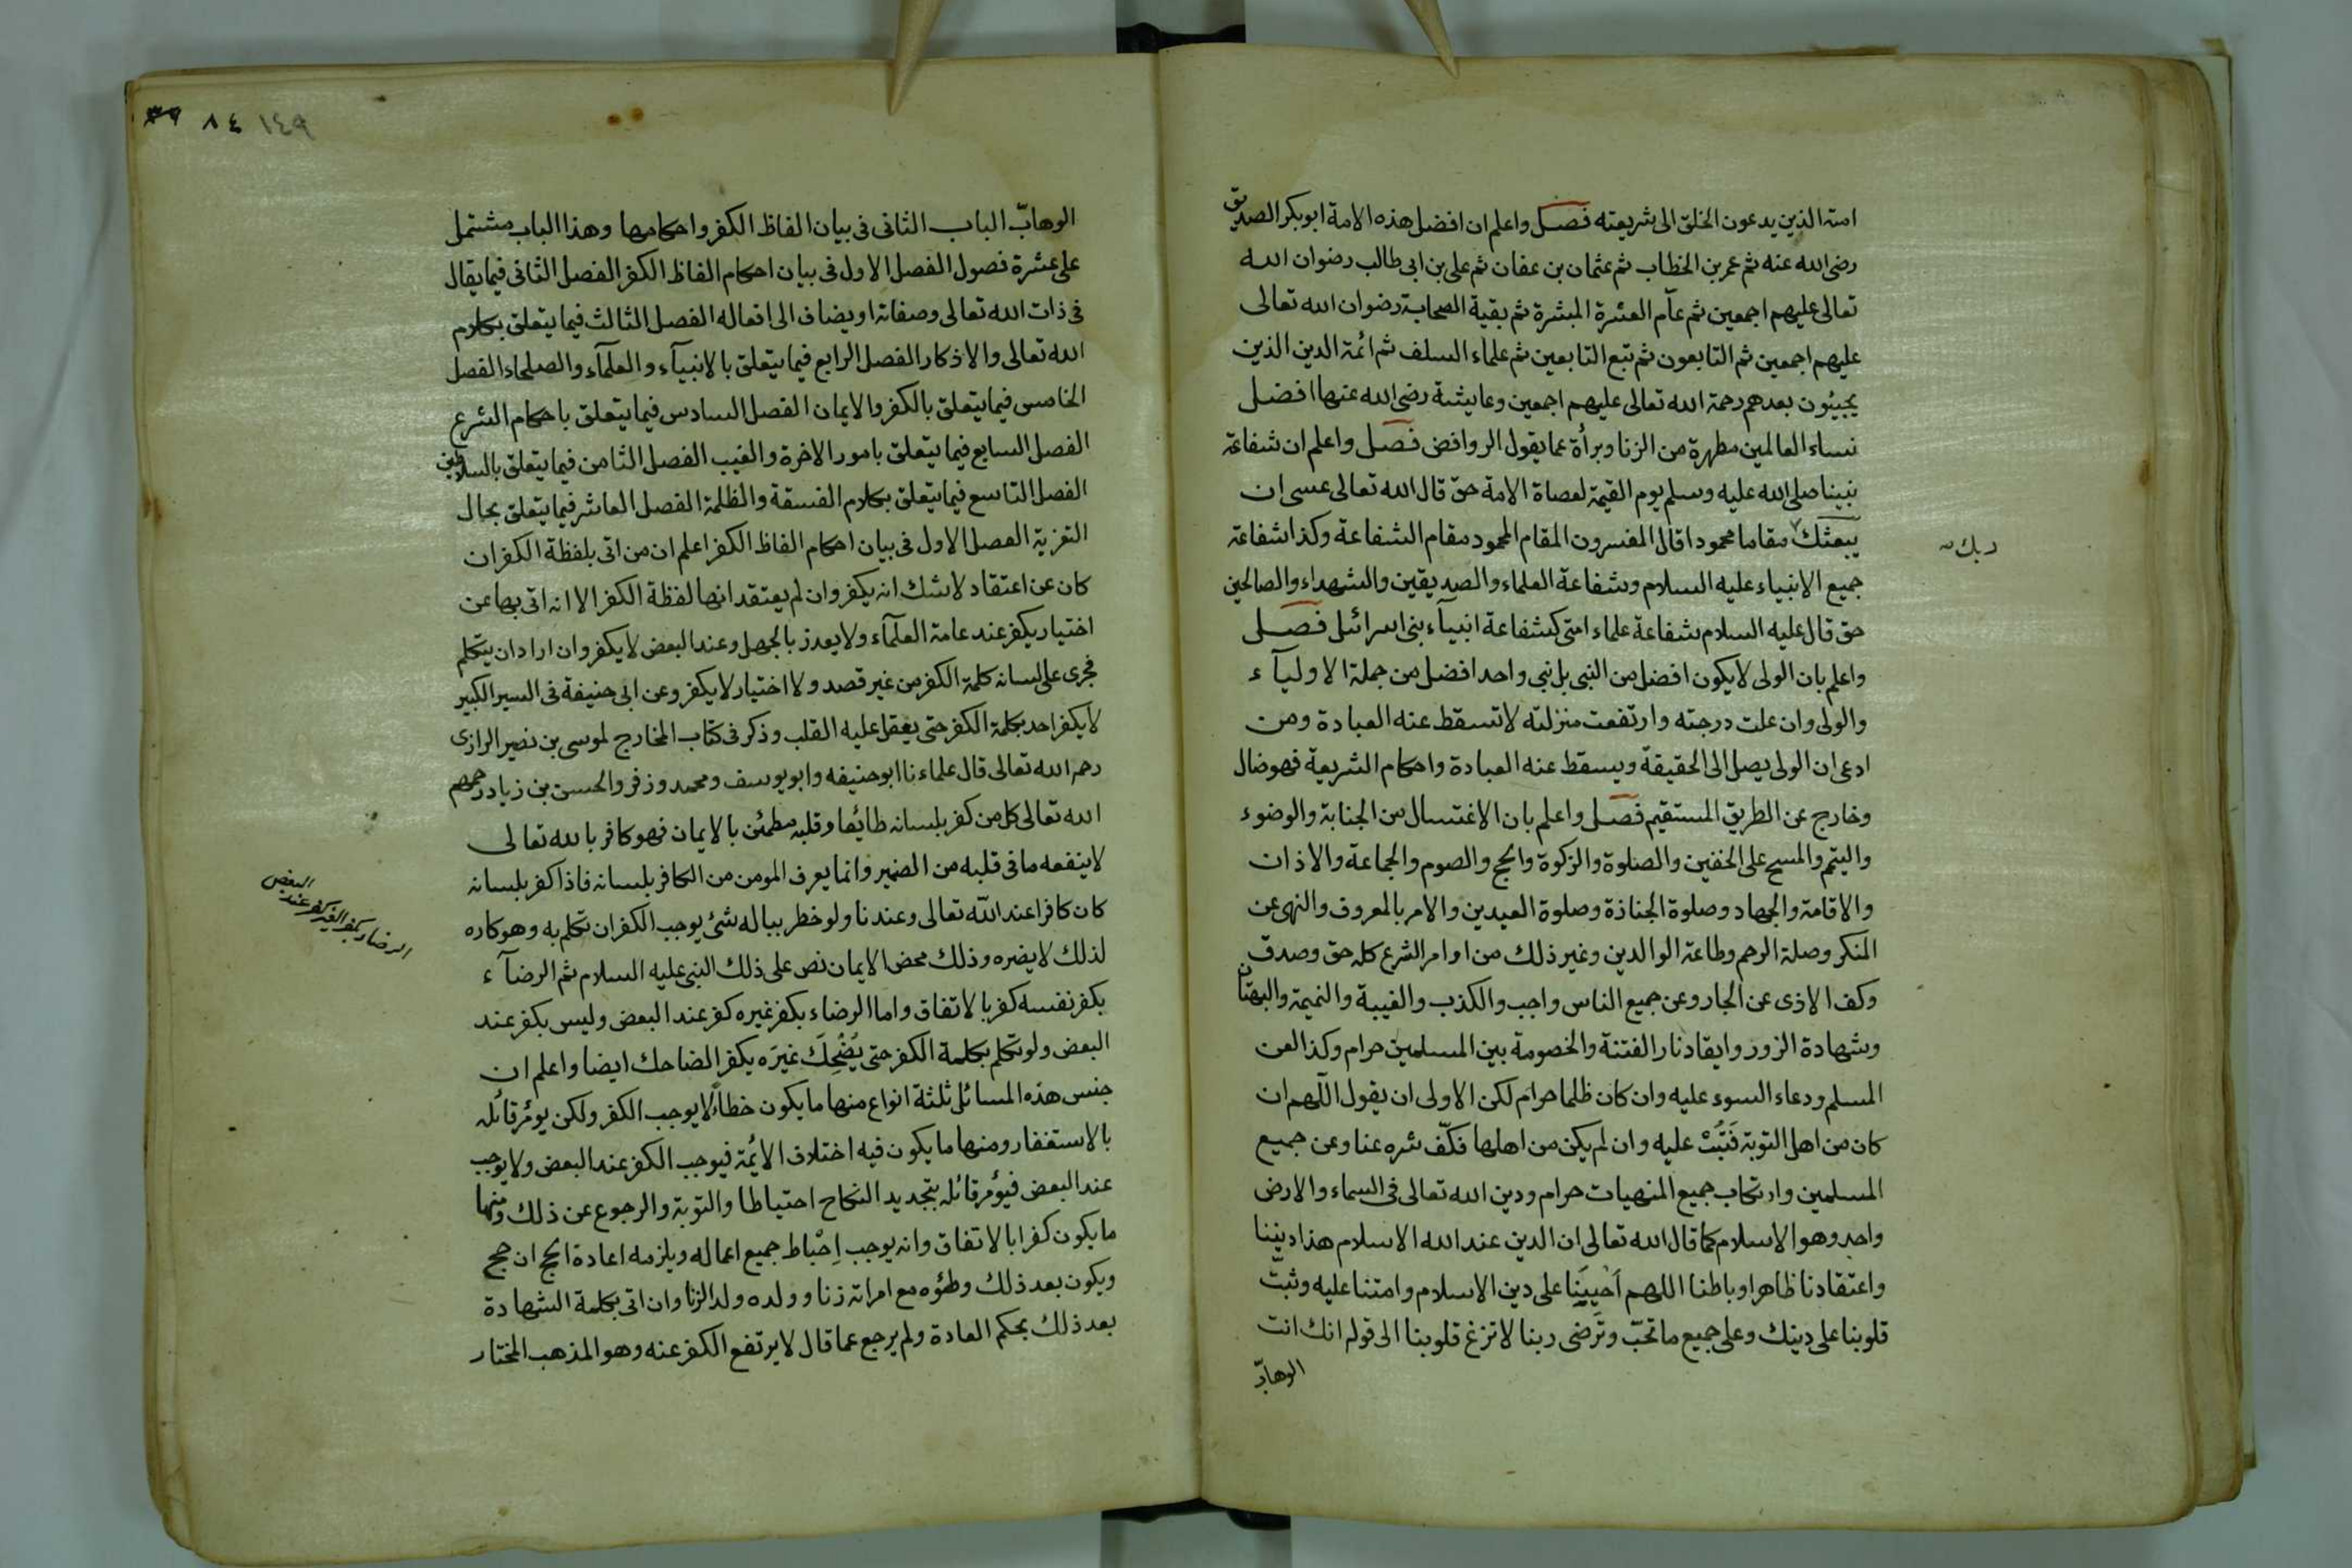 امته الذين يدعون الخلق الى شريعته فصل واعلم ان افضل هذه الامة ابو بكر الصديق
رضى الله عنه ثم عمر بن الخطاب ثم عثمان بن عفان ثم على بن ابى طالب رضوان الله
تعالى عليهم اجمعين ثم عام العشرة المبشرة ثم بقية الصحابة رضوان الله تعالى
عليهم اجمعين ثم التابعون ثم تبع التابعين ثم علماء السلف ثم ائمة الدين الذين
يجيئون بعدهم رحمة الله تعالى عليهم اجمعين وعايشة رضى الله عنها افضل
نساء العالمين مطهرة من الزنا وبرأة عما يقول الروافض فصل واعلم ان شفاعة
نبينا صلى الله عليه وسلم يوم القيمة لعصاة الامة حق قال الله تعالى عسى ان
يبعثك مقاما محمودا قال المفسرون المقام المحمود مقام الشفاعة وكذا شفاعة
ربك
جميع الانبياء عليه السلام وشفاعة العلماء والصديقين والشهداء والصالحين
حق قال عليه السلام شفاعة علماء امتى كشفاعة انبيآء بنى اسرائل فصل
واعلم بان الولى لا يكون افضل من النبى بل نبى واحد افضل من جملة الاوليآء
والولى وان علت درجته وارتفعت منزلته لا تسقط عنه العبادة ومن
ادعى ان الولى يصل الى الحقيقة ويسقط عنه العبادة واحكام الشريعة فهو ضال
وخارج عن الطريق المستقيم فصل واعلم بان الاغتسال من الجنابة والوضوء
والتيمم والمسح على الخفين والصلوة والزكوة والحج والصوم والجماعة والاذان
والاقامة والجهاد وصلوة الجنازة وصلوة العيدين والامر بالمعروف والنهى عن
المنكر وصلة الرحم وطاعة الوالدين وغير ذلك من اوامر الشرع كله حق وصدق
وكف الاذى عن الجار وعن جميع الناس واجب والكذب والغيبة والنميمة والبهتان
وشهادة الزور وايقاد نار الفتنة والخصومة بين المسلمين حرام وكذا لعن
المسلم ودعاء السوء عليه وان كان ظلما حرام لكن الاولى ان يقول اللهم ان
كان من اهل التوبة فَتُبْ عليه وان لم يكن من اهلها فكفّ شره عنا وعن جميع
المسلمين وارتكاب جميع المنهيات حرام ودين الله تعالى فى السماء والارض
واحد وهو الاسلام كما قال الله تعالى ان الدين عند الله الاسلام هذا ديننا
واعتقادنا ظاهرا وباطنا اللهم اَحْيِيَنا على دين الاسلام وامتنا عليه وثبّت
قلوبنا على دينك وعلى جميع ما تحبّ وترضى ربنا لا تزغ قلوبنا الى قوله انك انت
الوهابّ
١٤٩ ٨٤
الوهابّ الباب الثانى فى بيان الفاظ الكفر واحكامها وهذا الباب مشتمل
على عشرة فصول الفصل الاول فى بيان احكام الفاظ الكفر الفصل الثانى فيما يقال
فى ذات الله تعالى وصفاته او يضاف الى افعاله الفصل الثالث فيما يتعلق بكلام
الله تعالى والاذكار الفصل الرابع فيما يتعلق بالانبيآء والعلمآء والصلحاء الفصل
الخامس فيما يتعلق بالكفر والايمان الفصل السادس فيما يتعلق باحكام الشرع
الفصل السابع فيما يتعلق بامور الاخرة والغيب الفصل الثامن فيما يتعلق بالسلاطين
الفصل التاسع فيما يتعلق بكلام الفسقة والظلمة الفصل العاشر فيما يتعلق بحال
التعزية الفصل الاول فى بيان احكام الفاظ الكفر اعلم ان من اتى بلفظة الكفر ان
كان عن اعتقاد لا شك انه يكفر وان لم يعتقد انها لفظة الكفر الا انه اتى بها عن
اختيار يكفر عند عامة العلمآء ولا يعذر بالجهل وعند البعض لا يكفر وان اراد ان يتكلم
فجرى على لسانه كلمة الكفر من غير قصد ولا اختيار لا يكفر وعن ابى حنيفة فى السير الكبير
لا يكفر احد بكلمة الكفر حتى يعقل عليه القلب وذكر فى كتاب المخارج لموسى بن نصير الرازى
رحم الله تعالى قال علماءنا ابو حنيفه وابو يوسف ومحمد وزفر والحسن بن زياد رحمهم
الله تعالى كل من كفر بلسانه طائعا وقلبه مطمئن بالايمان فهو كافر بالله تعالى
لا ينفعه ما فى قلبه من الضمير وانما يعرف المومن من الكافر بلسانه فاذا كفر بلسانه
كان كافرا عند الله تعالى وعندنا ولو خطر بباله شئ يوجب الكفر ان تكلم به وهو كاره
لذلك لا يضره وذلك محض الايمان نص على ذلك النبى عليه السلام ثم الرضآء
بكفر نفسه كفر بالاتفاق واما الرضاء بكفر غيره كفر عند البعض وليس بكفر عند
الرضاء بكفر الغير كفر عند البعض
البعض ولو تكلم بكلمة الكفر حتى يَضْحِكَ غيرَه يكفر الضاحك ايضا واعلم ان
جنس هذه المسائل ثلثة انواع منها ما يكون خطاءً لا يوجب الكفر ولكن يومر قائله
بالاستغفار ومنها ما يكون فيه اختلاف الايمة فيوجب الكفر عند البعض ولا يوجب
عند البعض فيؤمر قائله بتجديد النكاح احتياطا والتوبة والرجوع عن ذلك ومنها
ما يكون كفرا بالاتفاق وانه يوجب اِحْباط جميع اعماله ويلزمه اعادة الحج ان حج
ويكون بعد ذلك وطئوه مع امراته زنا وولده ولد الزنا وان اتى بكلمة الشهادة
بعد ذلك بحكم العادة ولم يرجع عما قال لا يرتفع الكفر عنه وهو المذهب المختار